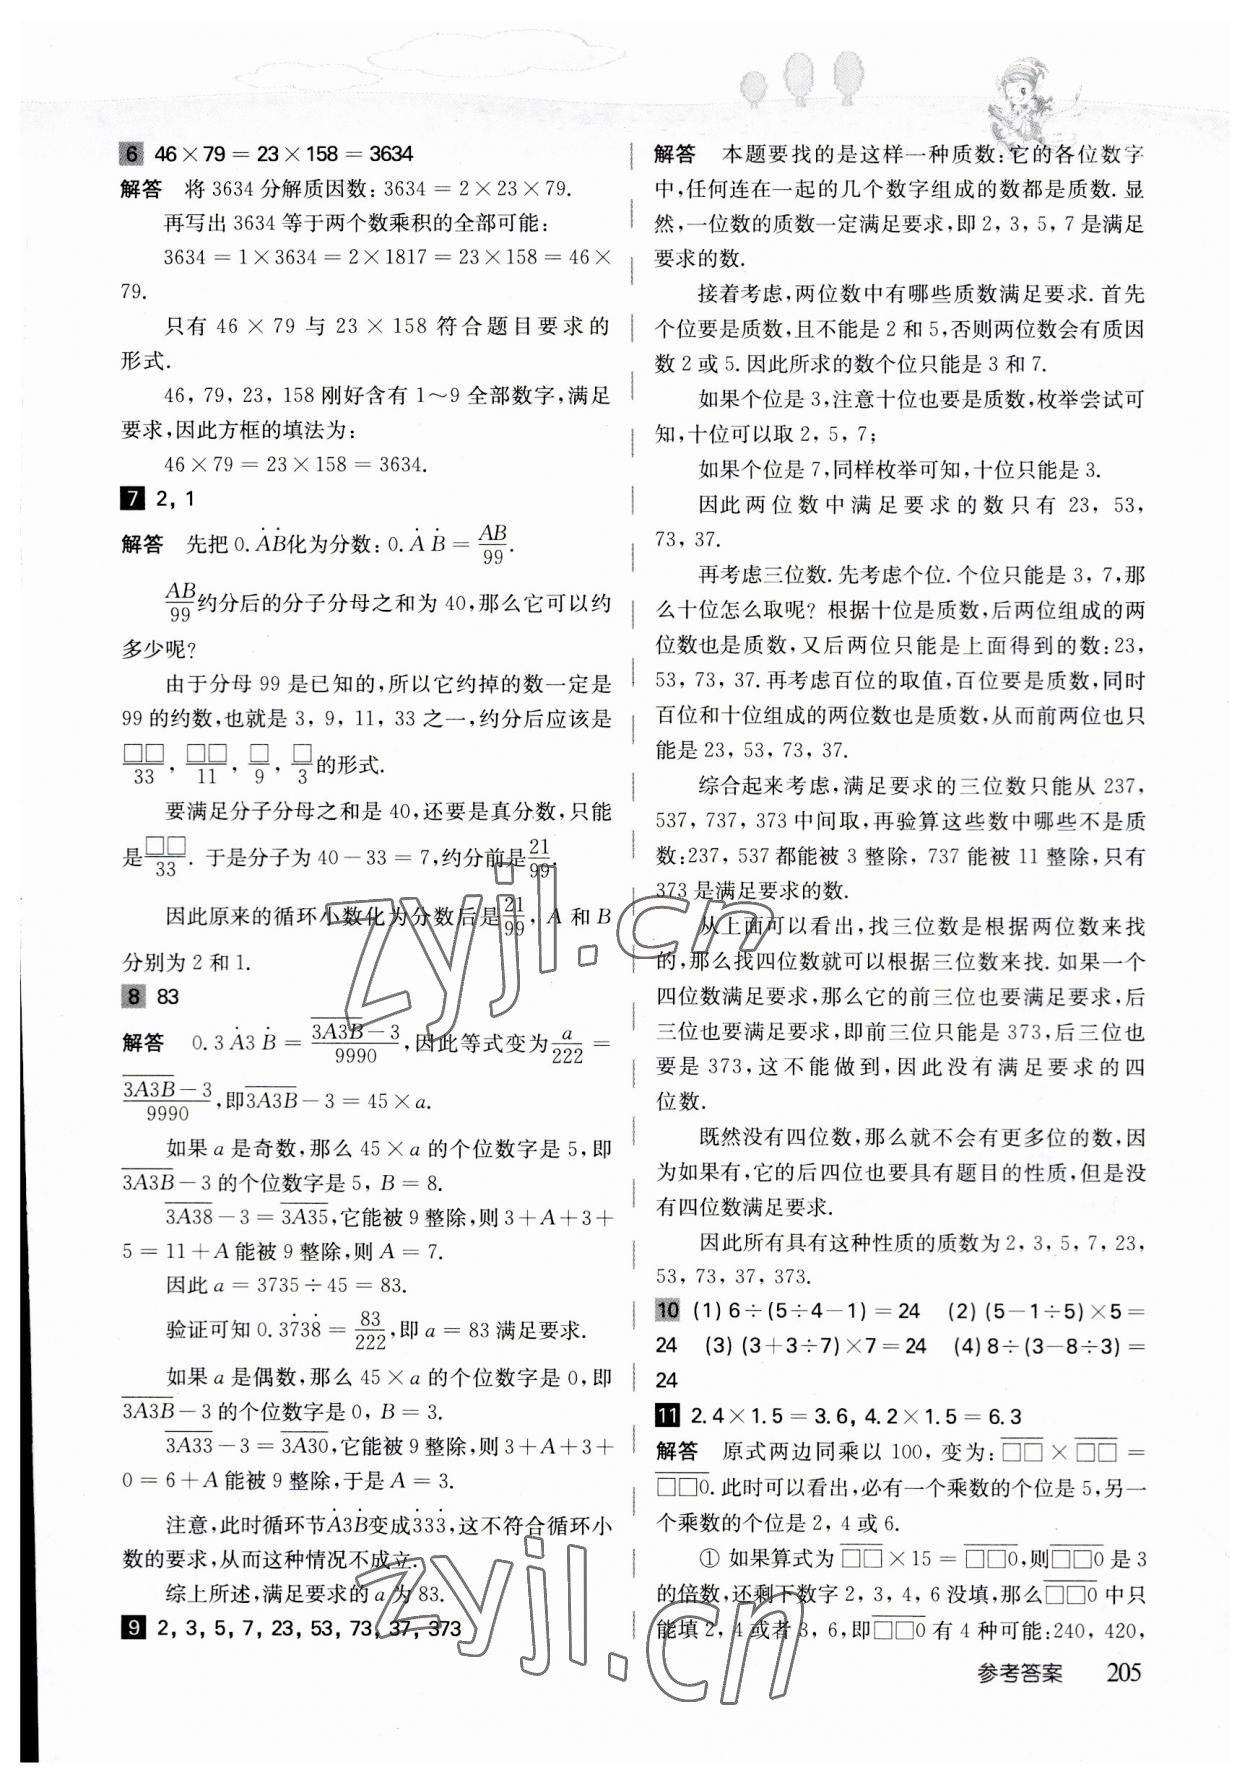 6 46×79=23×158=3634
解答 将 3634 分解质因数: 3634=2×23×79.
再写出 3634 等于两个数乘积的全部可能:
3634=1×3634=2×1817=23×158=46×
79.
只有 46×79 与 23×158 符合题目要求的
形式.
46, 79, 23, 158 刚好含有 1～9 全部数字,满足
要求,因此方框的填法为:
46×79=23×158=3634.
7 2, 1
解答 先把 0.ȦḂ化为分数: 0.ȦḂ=AB/99.
AB/99约分后的分子分母之和为 40,那么它可以约
多少呢?
由于分母 99 是已知的,所以它约掉的数一定是
99 的约数,也就是 3, 9, 11, 33 之一,约分后应该是
□□/33, □□/11, □/9, □/3的形式.
要满足分子分母之和是 40,还要是真分数,只能
是□□/33. 于是分子为 40-33=7,约分前是21/99.
因此原来的循环小数化为分数后是21/99, A 和 B
分别为 2 和 1.
8 83
解答 0.3Ȧ3Ḃ=(3A3B-3)/9990,因此等式变为a/222=
(3A3B-3)/9990,即3A3B-3=45×a.
如果 a 是奇数,那么 45×a 的个位数字是 5,即
3A3B-3 的个位数字是 5, B=8.
3A38-3=3A35,它能被 9 整除,则 3+A+3+
5=11+A 能被 9 整除,则 A=7.
因此 a=3735÷45=83.
验证可知 0.37̇38̇=83/222,即 a=83 满足要求.
如果 a 是偶数,那么 45×a 的个位数字是 0,即
3A3B-3 的个位数字是 0, B=3.
3A33-3=3A30,它能被 9 整除,则 3+A+3+
0=6+A 能被 9 整除,于是 A=3.
注意,此时循环节Ȧ3Ḃ变成3̇3̇3̇,这不符合循环小
数的要求,从而这种情况不成立.
综上所述,满足要求的 a 为 83.
9 2, 3, 5, 7, 23, 53, 73, 37, 373
解答 本题要找的是这样一种质数:它的各位数字
中,任何连在一起的几个数字组成的数都是质数. 显
然,一位数的质数一定满足要求,即 2, 3, 5, 7 是满足
要求的数.
接着考虑,两位数中有哪些质数满足要求. 首先
个位要是质数,且不能是 2 和 5,否则两位数会有质因
数 2 或 5. 因此所求的数个位只能是 3 和 7.
如果个位是 3,注意十位也要是质数,枚举尝试可
知,十位可以取 2, 5, 7;
如果个位是 7,同样枚举可知,十位只能是 3.
因此两位数中满足要求的数只有 23, 53,
73, 37.
再考虑三位数. 先考虑个位. 个位只能是 3, 7,那
么十位怎么取呢? 根据十位是质数,后两位组成的两
位数也是质数,又后两位只能是上面得到的数:23,
53, 73, 37. 再考虑百位的取值,百位要是质数,同时
百位和十位组成的两位数也是质数,从而前两位也只
能是 23, 53, 73, 37.
综合起来考虑,满足要求的三位数只能从 237,
537, 737, 373 中间取,再验算这些数中哪些不是质
数:237, 537 都能被 3 整除, 737 能被 11 整除,只有
373 是满足要求的数.
从上面可以看出,找三位数是根据两位数来找
的,那么找四位数就可以根据三位数来找. 如果一个
四位数满足要求,那么它的前三位也要满足要求,后
三位也要满足要求,即前三位只能是 373,后三位也
要是 373,这不能做到,因此没有满足要求的四
位数.
既然没有四位数,那么就不会有更多位的数,因
为如果有,它的后四位也要具有题目的性质,但是没
有四位数满足要求.
因此所有具有这种性质的质数为 2, 3, 5, 7, 23,
53, 73, 37, 373.
10 (1) 6÷(5÷4-1)=24 (2) (5-1÷5)×5=
24 (3) (3+3÷7)×7=24 (4) 8÷(3-8÷3)=
24
11 2.4×1.5=3.6, 4.2×1.5=6.3
解答 原式两边同乘以 100, 变为: □□×□□=
□□0. 此时可以看出,必有一个乘数的个位是 5,另一
个乘数的个位是 2, 4 或 6.
① 如果算式为 □□×15=□□0,则□□0 是 3
的倍数,还剩下数字 2, 3, 4, 6 没填,那么□□0 中只
能填 2, 4 或者 3, 6,即□□0 有 4 种可能:240, 420,
参考答案 205
zyjl.cn
zyjl.cn